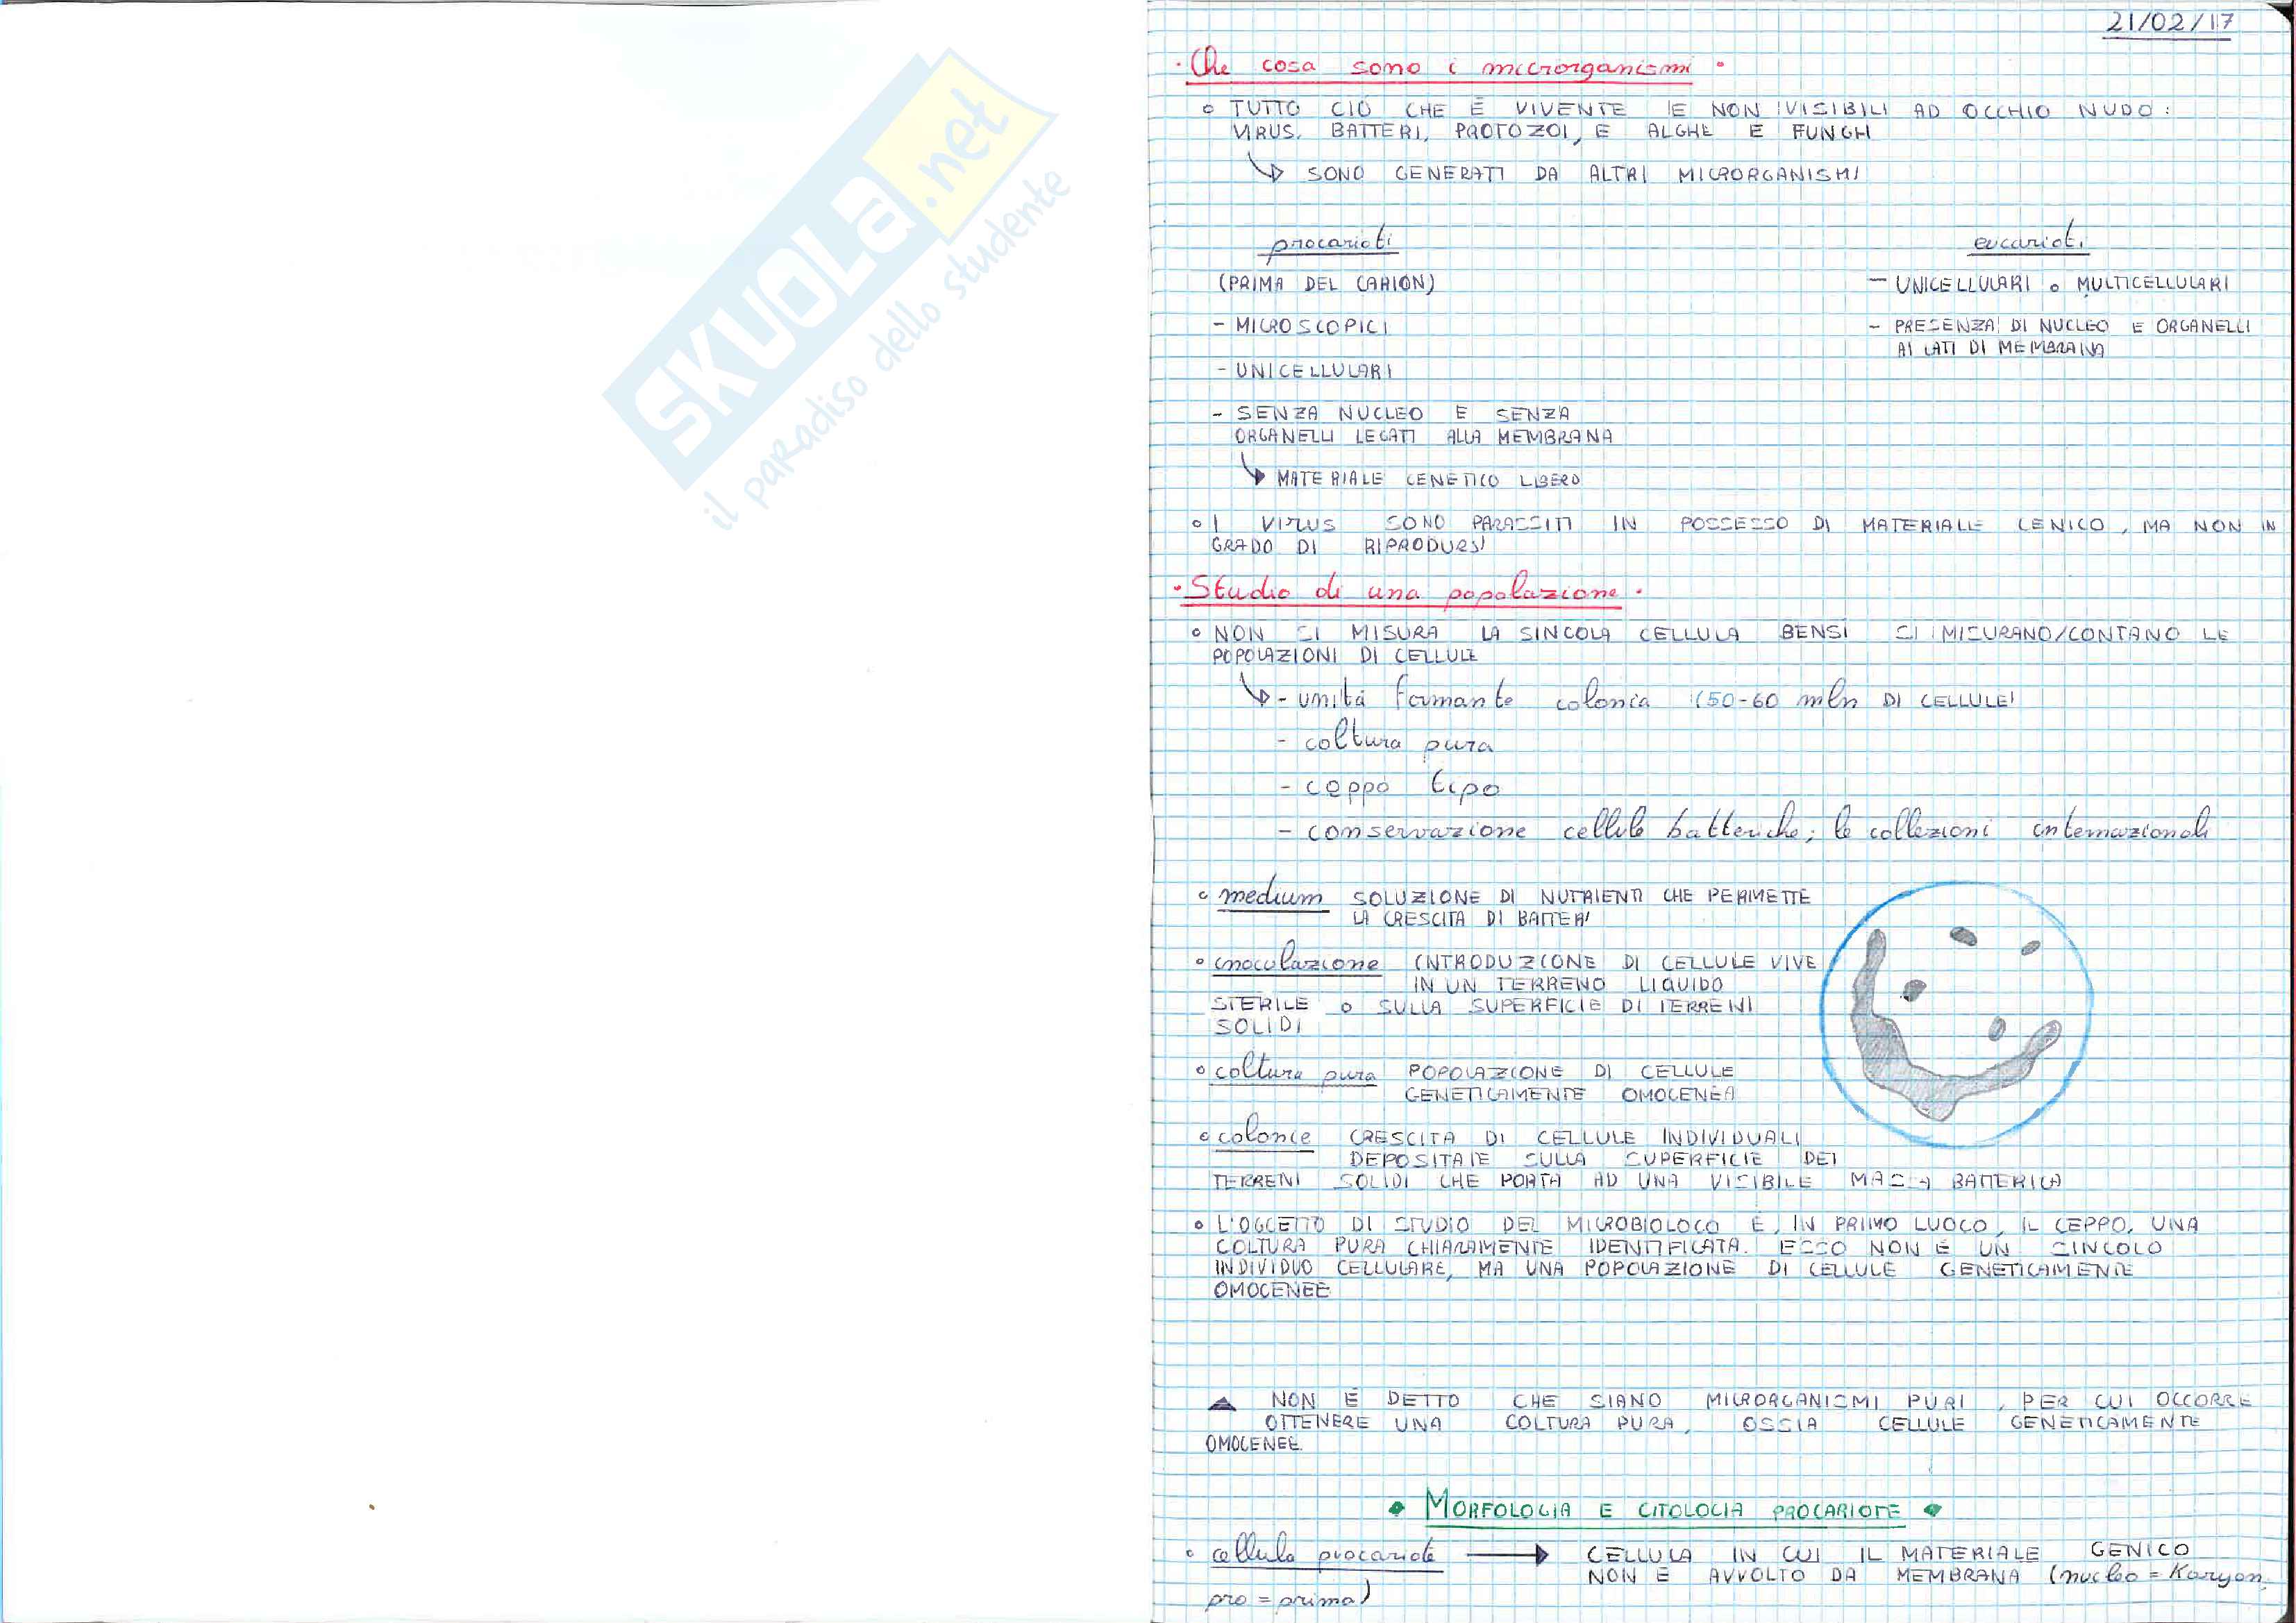 SKUOLA.net
il paradiso dello studente
21/02/17
· Che cosa sono i microrganismi ·
o TUTTO CIÒ CHE È VIVENTE E NON VISIBILI AD OCCHIO NUDO:
VIRUS, BATTERI, PROTOZOI, E ALGHE E FUNGHI
↳ SONO GENERATI DA ALTRI MICRORGANISMI
procarioti
(PRIMA DEL CARION)
- MICROSCOPICI
- UNICELLULARI
- SENZA NUCLEO E SENZA
ORGANELLI LEGATI ALLA MEMBRANA
↳ MATERIALE GENETICO LIBERO
eucarioti
- UNICELLULARI o MULTICELLULARI
- PRESENZA DI NUCLEO E ORGANELLI
AI LATI DI MEMBRANA
o I VIRUS SONO PARASSITI IN POSSESSO DI MATERIALE GENICO, MA NON IN
GRADO DI RIPRODURSI
· Studio di una popolazione ·
o NON SI MISURA LA SINGOLA CELLULA BENSÌ SI MISURANO/CONTANO LE
POPOLAZIONI DI CELLULE
↳ - unità formante colonia (50-60 mln DI CELLULE)
- coltura pura
- ceppo tipo
- conservazione cellule batteriche; le collezioni internazionali
o medium SOLUZIONE DI NUTRIENTI CHE PERMETTE
LA CRESCITA DI BATTERI
o inoculazione INTRODUZIONE DI CELLULE VIVE
IN UN TERRENO LIQUIDO
STERILE o SULLA SUPERFICIE DI TERRENI
SOLIDI
o coltura pura POPOLAZIONE DI CELLULE
GENETICAMENTE OMOGENEA
o colonie CRESCITA DI CELLULE INDIVIDUALI
DEPOSITATE SULLA SUPERFICIE DEI
TERRENI SOLIDI CHE PORTA AD UNA VISIBILE MASSA BATTERICA
o L'OGGETTO DI STUDIO DEL MICROBIOLOGO È, IN PRIMO LUOGO, IL CEPPO, UNA
COLTURA PURA CHIARAMENTE IDENTIFICATA. ESSO NON È UN SINGOLO
INDIVIDUO CELLULARE, MA UNA POPOLAZIONE DI CELLULE GENETICAMENTE
OMOGENEE
▲ NON È DETTO CHE SIANO MICRORGANISMI PURI, PER CUI OCCORRE
OTTENERE UNA COLTURA PURA, OSSIA CELLULE GENETICAMENTE
OMOGENEE.
◆ MORFOLOGIA E CITOLOGIA PROCARIOTE ◆
o cellula procariote → CELLULA IN CUI IL MATERIALE GENICO
NON È AVVOLTO DA MEMBRANA (nucleo = Karyon,
pro = prima)